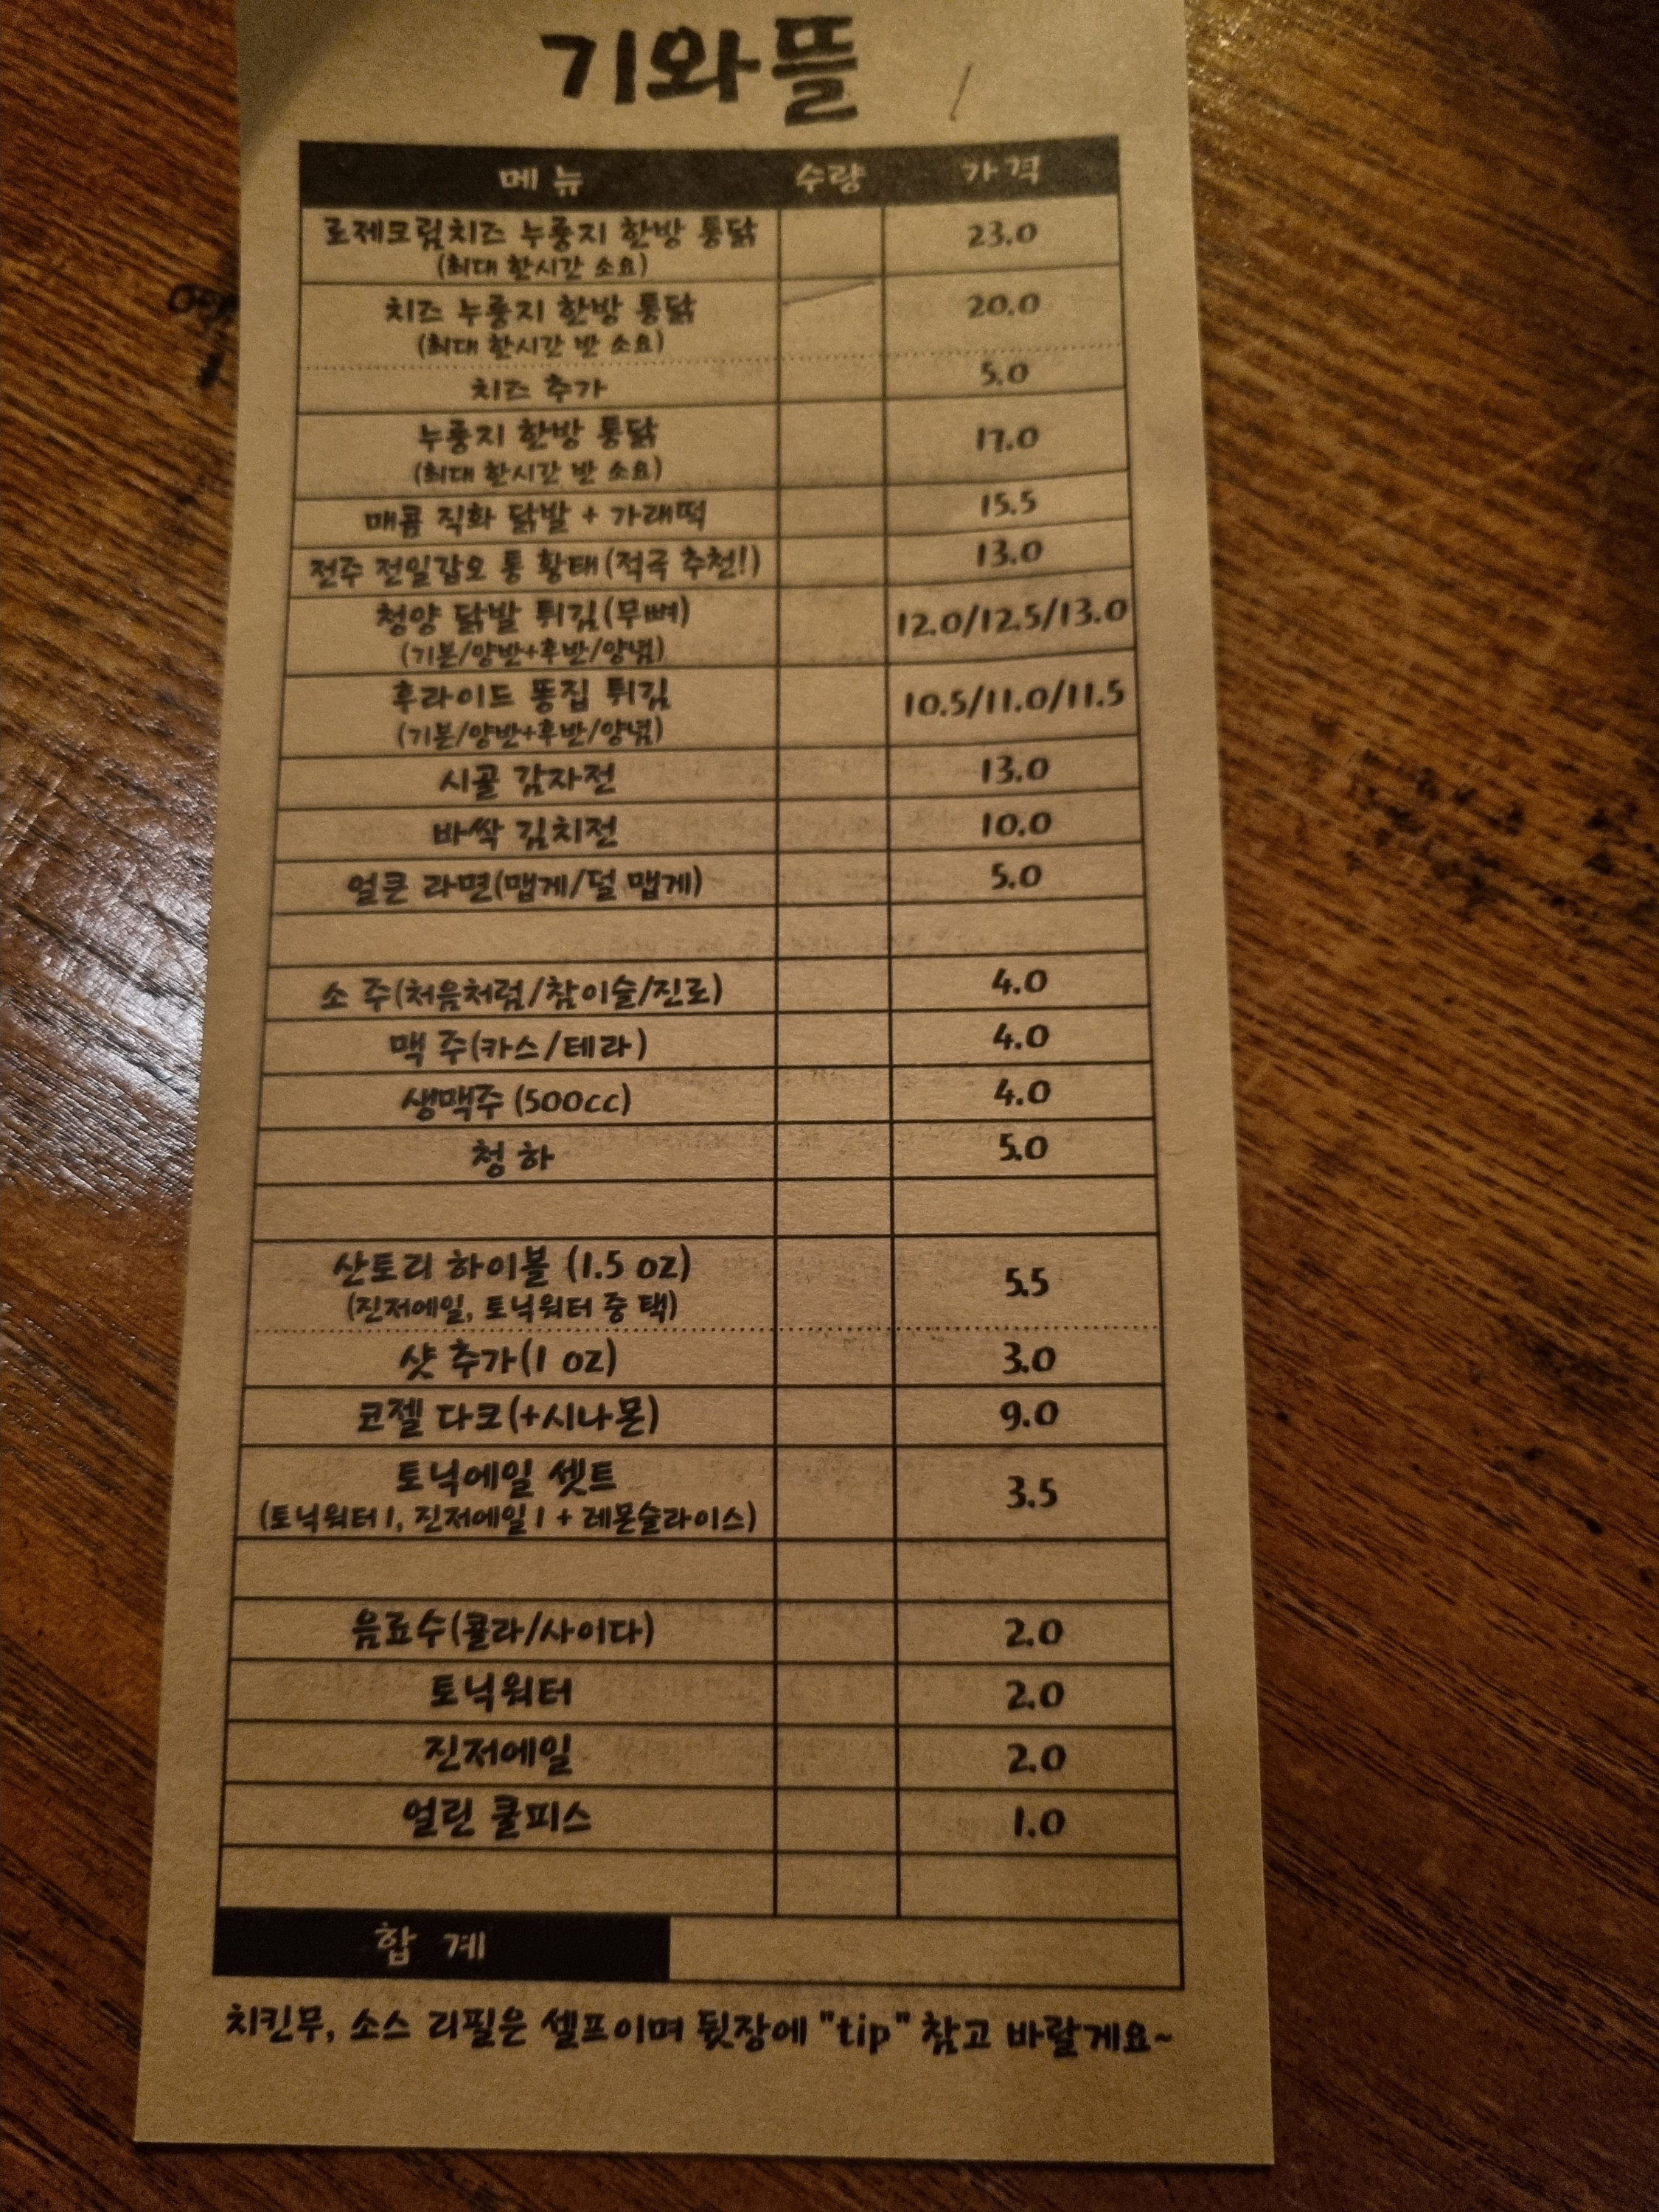 기와뜰
메뉴 수량 가격
로제크림치즈 누룽지 한방 통닭 23.0
(최대 한시간 소요)
치즈 누룽지 한방 통닭 20.0
(최대 한시간 반 소요)
치즈 추가 5.0
누룽지 한방 통닭 17.0
(최대 한시간 반 소요)
매콤 직화 닭발 + 가래떡 15.5
전주 전일갑오 통 황태(적극 추천!) 13.0
청양 닭발 튀김(무뼈) 12.0/12.5/13.0
(기본/양반+후반/양념)
후라이드 똥집 튀김 10.5/11.0/11.5
(기본/양반+후반/양념)
시골 감자전 13.0
바싹 김치전 10.0
얼큰 라면(맵게/덜 맵게) 5.0
소 주(처음처럼/참이슬/진로) 4.0
맥 주(카스/테라) 4.0
생맥주 (500cc) 4.0
청 하 5.0
산토리 하이볼 (1.5 oz) 5.5
(진저에일, 토닉워터 중 택)
샷 추가(1 oz) 3.0
코젤 다크(+시나몬) 9.0
토닉에일 셋트 3.5
(토닉워터 1, 진저에일 1 + 레몬슬라이스)
음료수(콜라/사이다) 2.0
토닉워터 2.0
진저에일 2.0
얼린 쿨피스 1.0
합 계
치킨무, 소스 리필은 셀프이며 뒷장에 "tip" 참고 바랄게요~